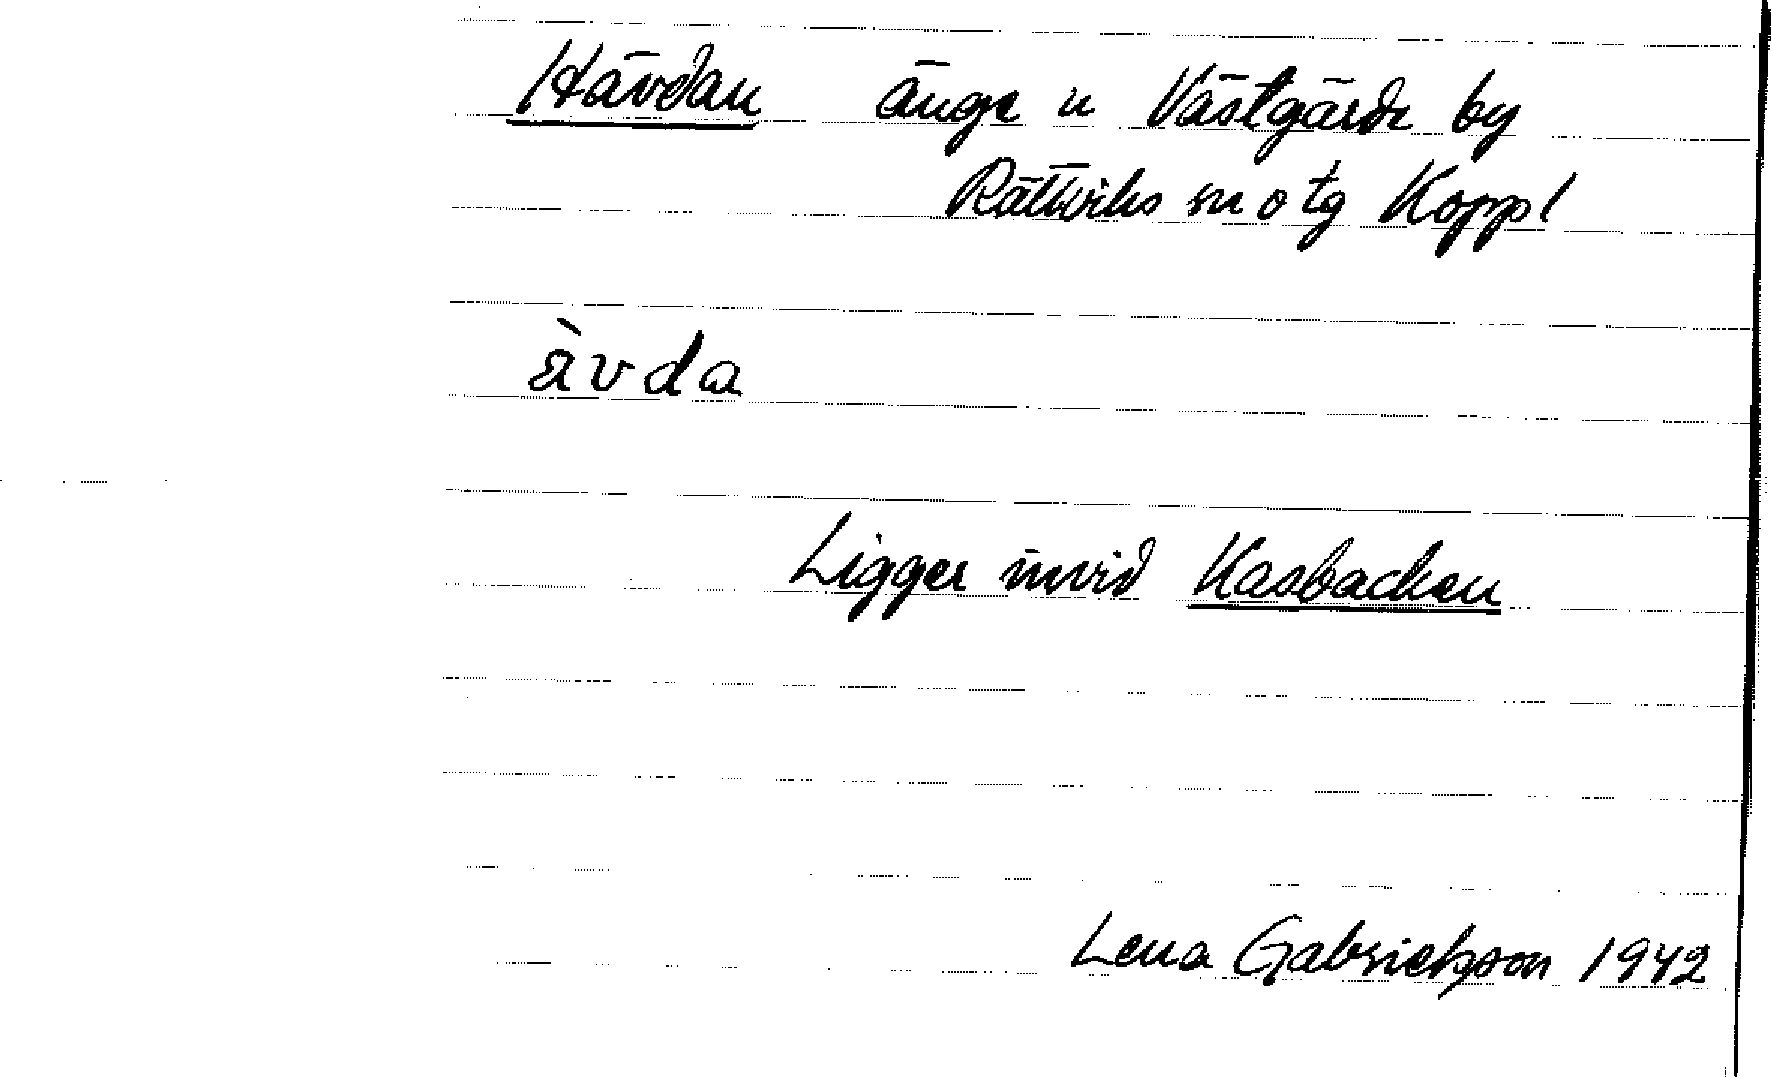 Hävdan änge u Västgärde by
Rättviks sn o tg Koppl
ä̀vda
Ligger invid Kasbacken
Lena Gabrielsson 1942